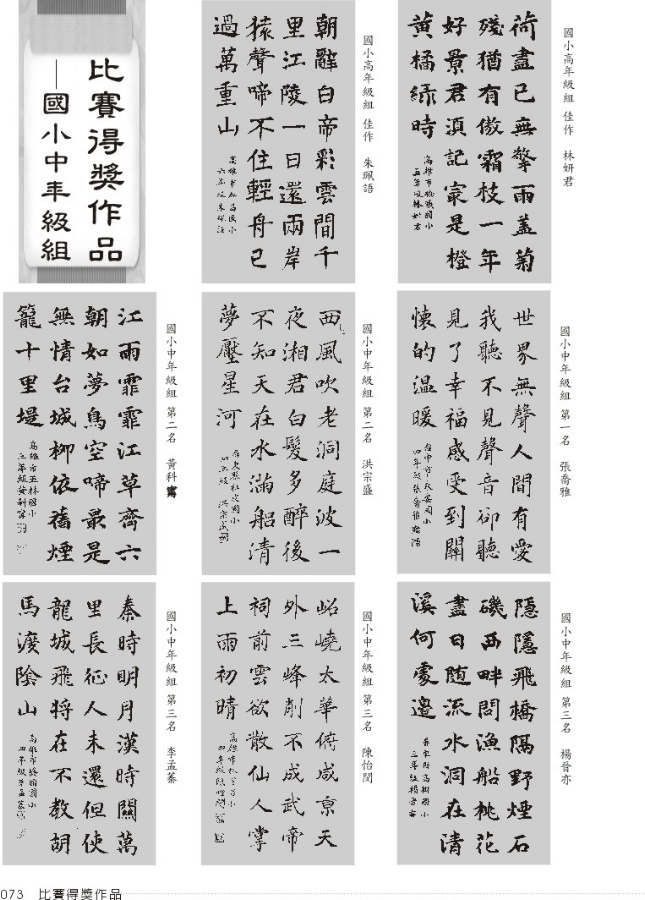 國小高年級組 佳作 林妍君
荷盡已無擎雨蓋菊
殘猶有傲霜枝一年
好景君須記是橙
黃橘綠時
國小高年級組 佳作 朱珮語
朝辭白帝彩雲間千
里江陵一日還兩岸
猿聲啼不住輕舟已
過萬重山
比賽得獎作品
—國小中年級組
國小中年級組 第一名 張喬雅
世界無聲人間有愛
我聽不見聲音卻聽
見了幸福感受到關
懷的溫暖
國小中年級組 第二名 洪宗盛
西風吹老洞庭波一
夜湘君白髮多醉後
不知天在水滿船清
夢壓星河
國小中年級組 第二名 黃科
江雨霏霏江草齊六
朝如夢鳥空啼最是
無情台城柳依舊煙
籠十里堤
國小中年級組 第三名 楊晉亦
隱隱飛橋隔野煙石
磯西畔問漁船桃花
盡日随流水洞在清
溪何處邊
國小中年級組 第三名 陳怡閔
岧嶢太華俯咸京天
外三峰削不成武帝
祠前雲欲散仙人掌
上雨初晴
國小中年級組 第三名 李孟蓁
秦時明月漢時關萬
里長征人未還但使
龍城飛將在不教胡
馬渡陰山
073 比賽得獎作品